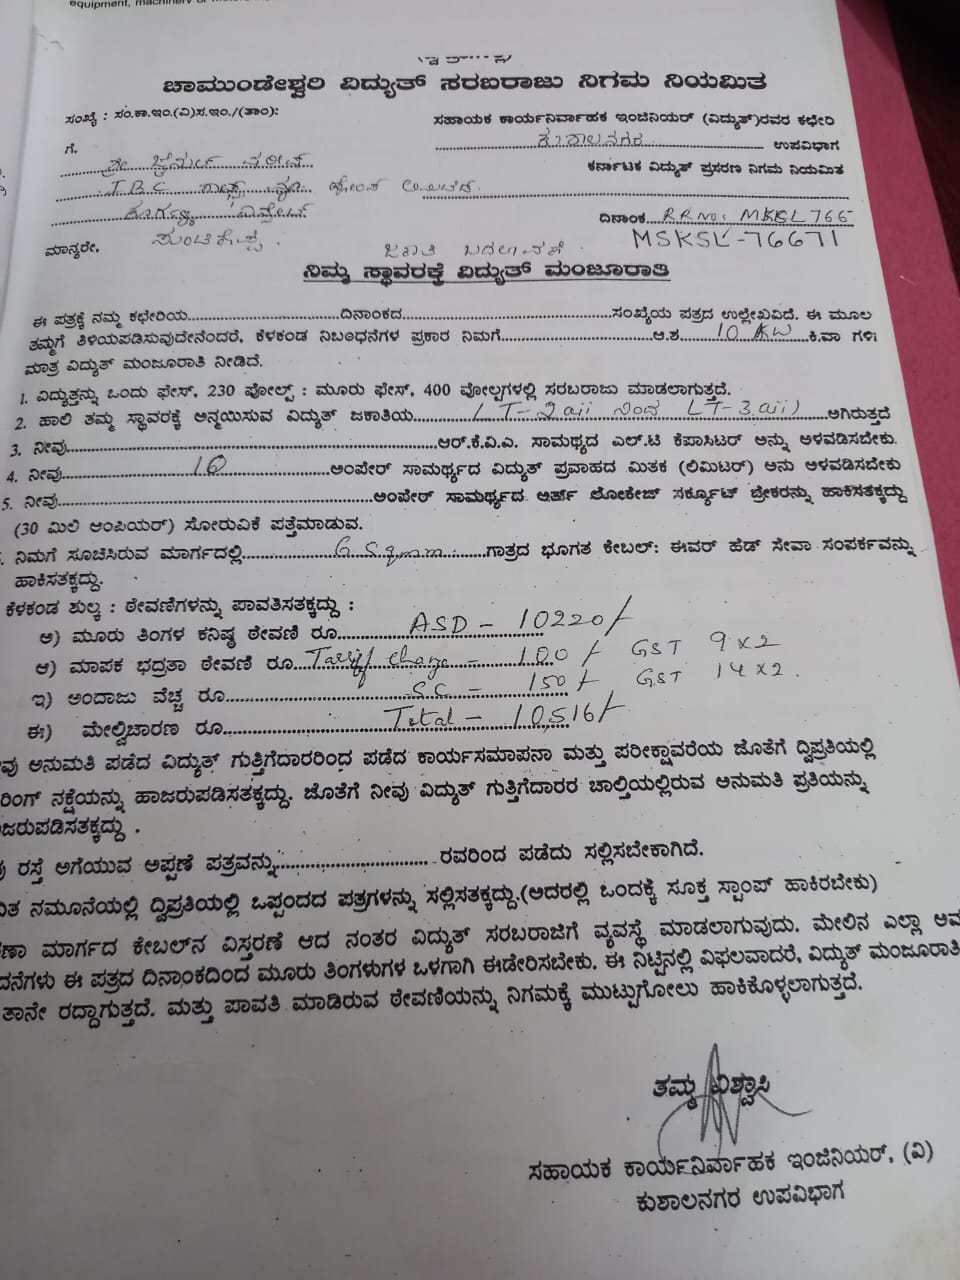 equipment, machinery or
ಚಾಮುಂಡೇಶ್ವರಿ ವಿದ್ಯುತ್ ಸರಬರಾಜು ನಿಗಮ ನಿಯಮಿತ
ಸಂಖ್ಯೆ : ಸಂ.ಕಾ.ಇಂ.(ವಿ)ಸ.ಇಂ./(ತಾಂ):
ಸಹಾಯಕ ಕಾರ್ಯನಿರ್ವಾಹಕ ಇಂಜಿನಿಯರ್ (ವಿದ್ಯುತ್)ರವರ ಕಛೇರಿ
ಗೆ.
ಕುಶಾಲನಗರ ಉಪವಿಭಾಗ
ಶ್ರೀ
ಕರ್ನಾಟಕ ವಿದ್ಯುತ್ ಪ್ರಸರಣ ನಿಗಮ ನಿಯಮಿತ
ದಿನಾಂಕ RRNo: MKSL766
ಮಾನ್ಯರೇ,
MSKSL-76671
ಜಕಾತಿ ಬದಲಾವಣೆ
ನಿಮ್ಮ ಸ್ಥಾವರಕ್ಕೆ ವಿದ್ಯುತ್ ಮಂಜೂರಾತಿ
ಈ ಪತ್ರಕ್ಕೆ ನಮ್ಮ ಕಛೇರಿಯ..........ದಿನಾಂಕದ..........ಸಂಖ್ಯೆಯ ಪತ್ರದ ಉಲ್ಲೇಖವಿದೆ. ಈ ಮೂಲ
ತಮ್ಮಗೆ ತಿಳಿಯಪಡಿಸುವುದೇನೆಂದರೆ, ಕೆಳಕಂಡ ನಿಬಂಧನೆಗಳ ಪ್ರಕಾರ ನಿಮಗೆ..........ಆ.ಶ..... 10 KW ....ಕಿ.ವಾ ಗಳಿ
ಮಾತ್ರ ವಿದ್ಯುತ್ ಮಂಜೂರಾತಿ ನೀಡಿದೆ.
1. ವಿದ್ಯುತ್ತನ್ನು ಒಂದು ಫೇಸ್, 230 ವೋಲ್ಟ್ : ಮೂರು ಫೇಸ್, 400 ವೋಲ್ಟಗಳಲ್ಲಿ ಸರಬರಾಜು ಮಾಡಲಾಗುತ್ತದೆ.
2. ಹಾಲಿ ತಮ್ಮ ಸ್ಥಾವರಕ್ಕೆ ಅನ್ವಯಿಸುವ ವಿದ್ಯುತ್ ಜಕಾತಿಯ..... LT-2aii ನಿಂದ LT-3.aii) .....ಆಗಿರುತ್ತದೆ
3. ನೀವು..........ಆರ್.ಕೆ.ವಿ.ಎ. ಸಾಮಥ್ಯದ ಎಲ್.ಟಿ ಕೆಪಾಸಿಟರ್ ಅನ್ನು ಅಳವಡಿಸಬೇಕು.
4. ನೀವು..... 10 .....ಅಂಪೇರ್ ಸಾಮರ್ಥ್ಯದ ವಿದ್ಯುತ್ ಪ್ರವಾಹದ ಮಿತಕ (ಲಿಮಿಟರ್) ಅನು ಅಳವಡಿಸಬೇಕು
5. ನೀವು..........ಅಂಪೇರ್ ಸಾಮರ್ಥ್ಯದ ಅರ್ತ್ ಲೀಕೇಜ್ ಸರ್ಕ್ಯೂಟ್ ಬ್ರೇಕರನ್ನು ಹಾಕಿಸತಕ್ಕದ್ದು
(30 ಮಿಲಿ ಆಂಪಿಯರ್) ಸೋರುವಿಕೆ ಪತ್ತೆಮಾಡುವ.
ನಿಮಗೆ ಸೂಚಿಸಿರುವ ಮಾರ್ಗದಲ್ಲಿ..... 6 sqmm .....ಗಾತ್ರದ ಭೂಗತ ಕೇಬಲ್: ಈವರ್ ಹೆಡ್ ಸೇವಾ ಸಂಪರ್ಕವನ್ನು
ಹಾಕಿಸತಕ್ಕದ್ದು.
ಕೆಳಕಂಡ ಶುಲ್ಕ : ಠೇವಣಿಗಳನ್ನು ಪಾವತಿಸತಕ್ಕದ್ದು :
ಅ) ಮೂರು ತಿಂಗಳ ಕನಿಷ್ಠ ಠೇವಣಿ ರೂ..... ASD - 10220/-
ಆ) ಮಾಪಕ ಭದ್ರತಾ ಠೇವಣಿ ರೂ..... Tariff charge - 100/- GST 9x2
ಇ) ಅಂದಾಜು ವೆಚ್ಚ ರೂ..... SC - 150/- GST 14x2.
ಈ) ಮೇಲ್ವಿಚಾರಣ ರೂ..... Total - 10,516/-
ವು ಅನುಮತಿ ಪಡೆದ ವಿದ್ಯುತ್ ಗುತ್ತಿಗೆದಾರರಿಂದ ಪಡೆದ ಕಾರ್ಯಸಮಾಪನಾ ಮತ್ತು ಪರೀಕ್ಷಾವರೆಯ ಜೊತೆಗೆ ದ್ವಿಪ್ರತಿಯಲ್ಲಿ
ರಿಂಗ್ ನಕ್ಷೆಯನ್ನು ಹಾಜರುಪಡಿಸತಕ್ಕದ್ದು. ಜೊತೆಗೆ ನೀವು ವಿದ್ಯುತ್ ಗುತ್ತಿಗೆದಾರರ ಚಾಲ್ತಿಯಲ್ಲಿರುವ ಅನುಮತಿ ಪ್ರತಿಯನ್ನು
ಜರುಪಡಿಸತಕ್ಕದ್ದು .
ರಸ್ತೆ ಅಗೆಯುವ ಅಪ್ಪಣೆ ಪತ್ರವನ್ನು..........ರವರಿಂದ ಪಡೆದು ಸಲ್ಲಿಸಬೇಕಾಗಿದೆ.
ತ ನಮೂನೆಯಲ್ಲಿ ದ್ವಿಪ್ರತಿಯಲ್ಲಿ ಒಪ್ಪಂದದ ಪತ್ರಗಳನ್ನು ಸಲ್ಲಿಸತಕ್ಕದ್ದು.(ಅದರಲ್ಲಿ ಒಂದಕ್ಕೆ ಸೂಕ್ತ ಸ್ಟಾಂಪ್ ಹಾಕಿರಬೇಕು)
ಣಾ ಮಾರ್ಗದ ಕೇಬಲ್‌ನ ವಿಸ್ತರಣೆ ಆದ ನಂತರ ವಿದ್ಯುತ್ ಸರಬರಾಜಿಗೆ ವ್ಯವಸ್ಥೆ ಮಾಡಲಾಗುವುದು. ಮೇಲಿನ ಎಲ್ಲಾ
ದನೆಗಳು ಈ ಪತ್ರದ ದಿನಾಂಕದಿಂದ ಮೂರು ತಿಂಗಳುಗಳ ಒಳಗಾಗಿ ಈಡೇರಿಸಬೇಕು. ಈ ನಿಟ್ಟಿನಲ್ಲಿ ವಿಫಲವಾದರೆ, ವಿದ್ಯುತ್ ಮಂಜೂರಾತಿ
ತಾನೇ ರದ್ದಾಗುತ್ತದೆ. ಮತ್ತು ಪಾವತಿ ಮಾಡಿರುವ ಠೇವಣಿಯನ್ನು ನಿಗಮಕ್ಕೆ ಮುಟ್ಟುಗೋಲು ಹಾಕಿಕೊಳ್ಳಲಾಗುತ್ತದೆ.
ತಮ್ಮ ವಿಶ್ವಾಸಿ
ಸಹಾಯಕ ಕಾರ್ಯನಿರ್ವಾಹಕ ಇಂಜಿನಿಯರ್, (ವಿ)
ಕುಶಾಲನಗರ ಉಪವಿಭಾಗ